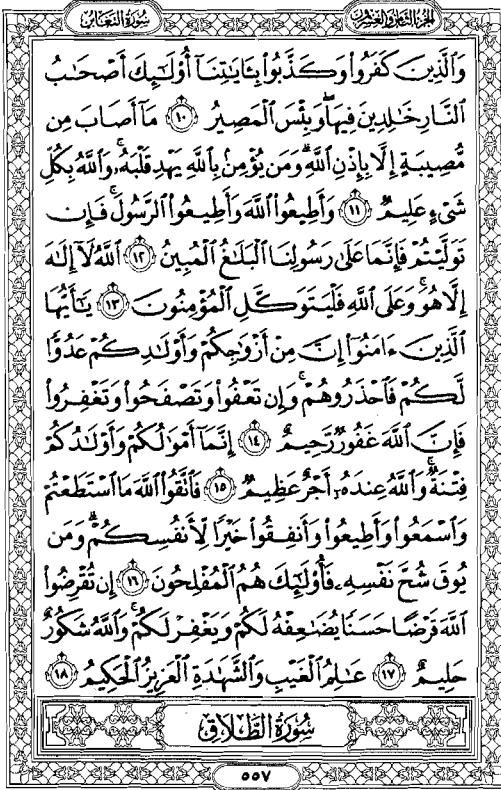 الجزء الثامن والعشرون
سورة التغابن
وَٱلَّذِينَ كَفَرُوا۟ وَكَذَّبُوا۟ بِـَٔايَٰتِنَآ أُو۟لَٰٓئِكَ أَصْحَٰبُ
ٱلنَّارِ خَٰلِدِينَ فِيهَا ۖ وَبِئْسَ ٱلْمَصِيرُ ١٠ مَآ أَصَابَ مِن
مُّصِيبَةٍ إِلَّا بِإِذْنِ ٱللَّهِ ۗ وَمَن يُؤْمِنۢ بِٱللَّهِ يَهْدِ قَلْبَهُۥ ۚ وَٱللَّهُ بِكُلِّ
شَىْءٍ عَلِيمٌ ١١ وَأَطِيعُوا۟ ٱللَّهَ وَأَطِيعُوا۟ ٱلرَّسُولَ ۚ فَإِن
تَوَلَّيْتُمْ فَإِنَّمَا عَلَىٰ رَسُولِنَا ٱلْبَلَٰغُ ٱلْمُبِينُ ١٢ ٱللَّهُ لَآ إِلَٰهَ
إِلَّا هُوَ ۚ وَعَلَى ٱللَّهِ فَلْيَتَوَكَّلِ ٱلْمُؤْمِنُونَ ١٣ يَٰٓأَيُّهَا
ٱلَّذِينَ ءَامَنُوٓا۟ إِنَّ مِنْ أَزْوَٰجِكُمْ وَأَوْلَٰدِكُمْ عَدُوًّا
لَّكُمْ فَٱحْذَرُوهُمْ ۚ وَإِن تَعْفُوا۟ وَتَصْفَحُوا۟ وَتَغْفِرُوا۟
فَإِنَّ ٱللَّهَ غَفُورٌ رَّحِيمٌ ١٤ إِنَّمَآ أَمْوَٰلُكُمْ وَأَوْلَٰدُكُمْ
فِتْنَةٌ ۚ وَٱللَّهُ عِندَهُۥٓ أَجْرٌ عَظِيمٌ ١٥ فَٱتَّقُوا۟ ٱللَّهَ مَا ٱسْتَطَعْتُمْ
وَٱسْمَعُوا۟ وَأَطِيعُوا۟ وَأَنفِقُوا۟ خَيْرًا لِّأَنفُسِكُمْ ۗ وَمَن
يُوقَ شُحَّ نَفْسِهِۦ فَأُو۟لَٰٓئِكَ هُمُ ٱلْمُفْلِحُونَ ١٦ إِن تُقْرِضُوا۟
ٱللَّهَ قَرْضًا حَسَنًا يُضَٰعِفْهُ لَكُمْ وَيَغْفِرْ لَكُمْ ۚ وَٱللَّهُ شَكُورٌ
حَلِيمٌ ١٧ عَٰلِمُ ٱلْغَيْبِ وَٱلشَّهَٰدَةِ ٱلْعَزِيزُ ٱلْحَكِيمُ ١٨
سُورَةُ الطَّلَاقِ
٥٥٧